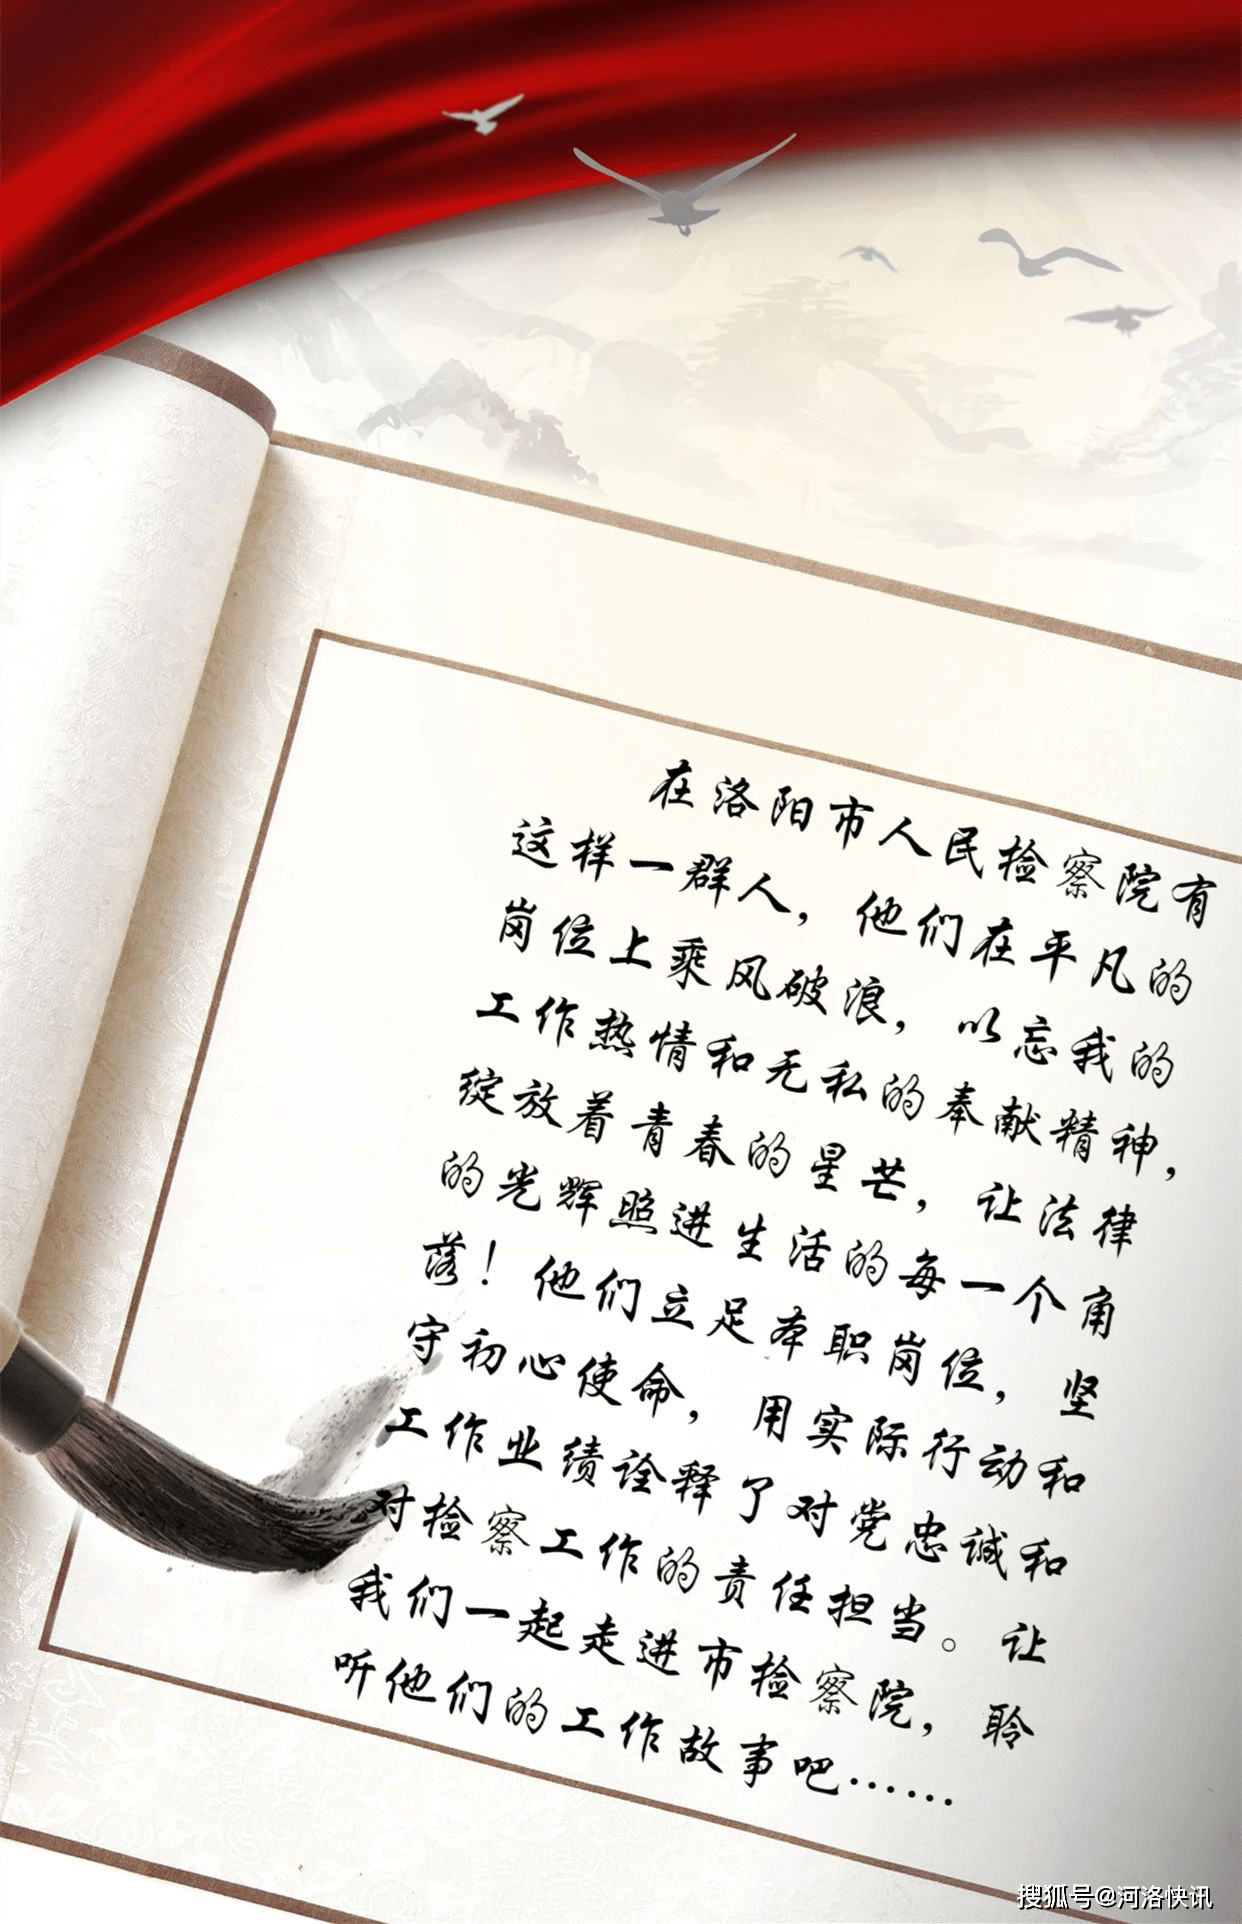 在洛阳市人民检察院有
这样一群人，他们在平凡的
岗位上乘风破浪，以忘我的
工作热情和无私的奉献精神，
绽放着青春的星芒，让法律
的光辉照进生活的每一个角
落！他们立足本职岗位，坚
守初心使命，用实际行动和
工作业绩诠释了对党忠诚和
对检察工作的责任担当。让
我们一起走进市检察院，聆
听他们的工作故事吧……
搜狐号@河洛快讯